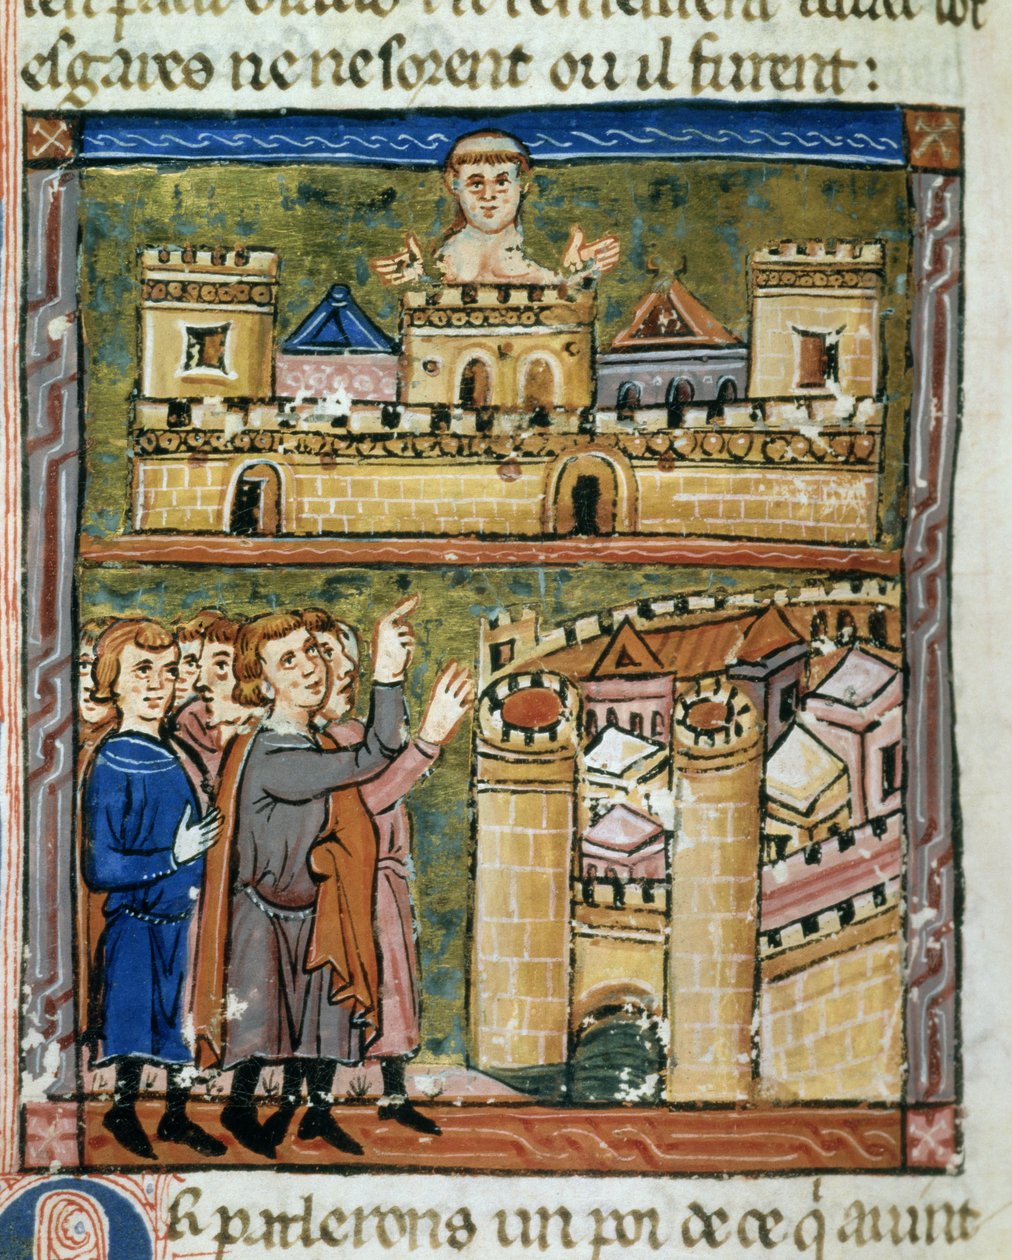 esgares ne ne sorent ou il furent:
Or parlerons un poi de ce q̍ auint